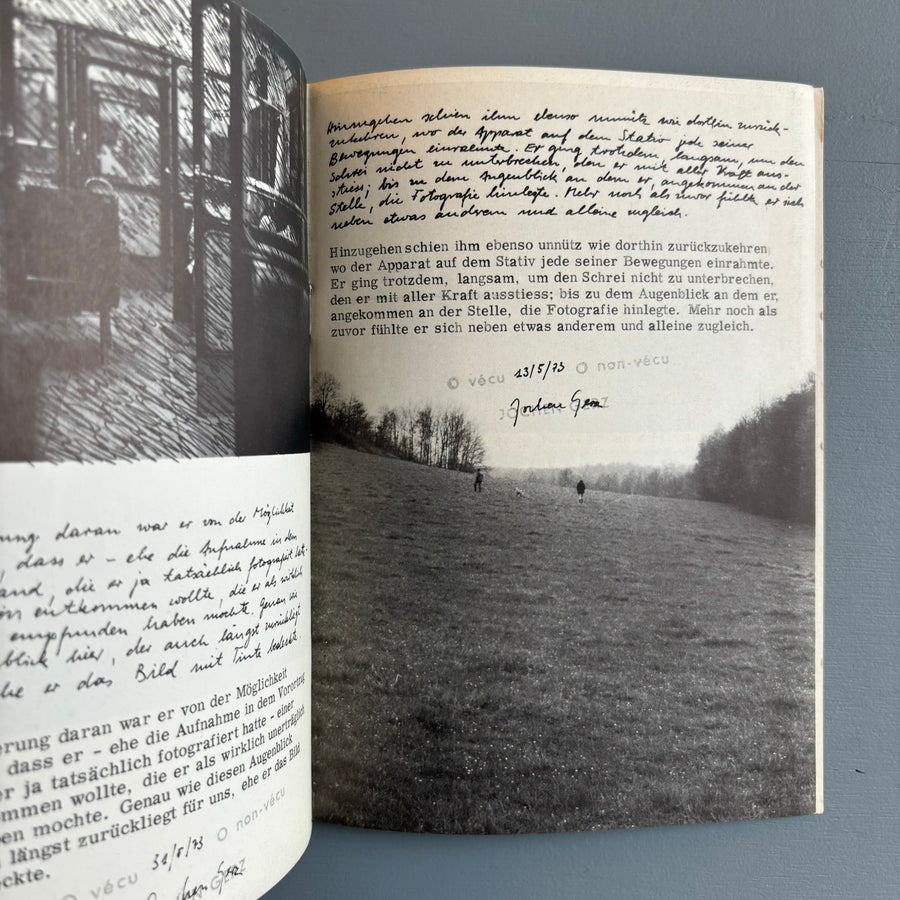 ung daran war er von der Möglichkeit
, dass er – ehe die Aufnahme in dem
and, die er ja tatsächlich fotografiert hatte-
entkommen wollte, die er als wirklich
empfunden haben mochte. Genau wie
blick hier, der auch längst zurückliegt
he er das Bild mit Tinte bedeckte.
erung daran war er von der Möglichkeit
dass er – ehe die Aufnahme in dem Vorortzug
er ja tatsächlich fotografiert hatte – einer
mmen wollte, die er als wirklich unerträglich
en mochte. Genau wie diesen Augenblick
längst zurückliegt für uns, ehe er das Bild
ckte.
O vécu 31/5/73 O non-vécu
Jochen Gerz
GERZ
Hinzugehen schien ihm ebenso unnütz wie dorthin zurück-
zukehren, wo der Apparat auf dem Stativ jede seiner
Bewegungen einrahmte. Er ging trotzdem, langsam, um den
Schrei nicht zu unterbrechen, den er mit aller Kraft aus-
stiess; bis zu dem Augenblick an dem er, angekommen an der
Stelle, die Fotografie hinlegte. Mehr noch als zuvor fühlte er sich
neben etwas anderem und alleine zugleich.
Hinzugehen schien ihm ebenso unnütz wie dorthin zurückzukehren,
wo der Apparat auf dem Stativ jede seiner Bewegungen einrahmte.
Er ging trotzdem, langsam, um den Schrei nicht zu unterbrechen,
den er mit aller Kraft ausstiess; bis zu dem Augenblick an dem er,
angekommen an der Stelle, die Fotografie hinlegte. Mehr noch als
zuvor fühlte er sich neben etwas anderem und alleine zugleich.
O vécu 13/5/73 O non-vécu
Jochen Gerz
JOCHEN GERZ